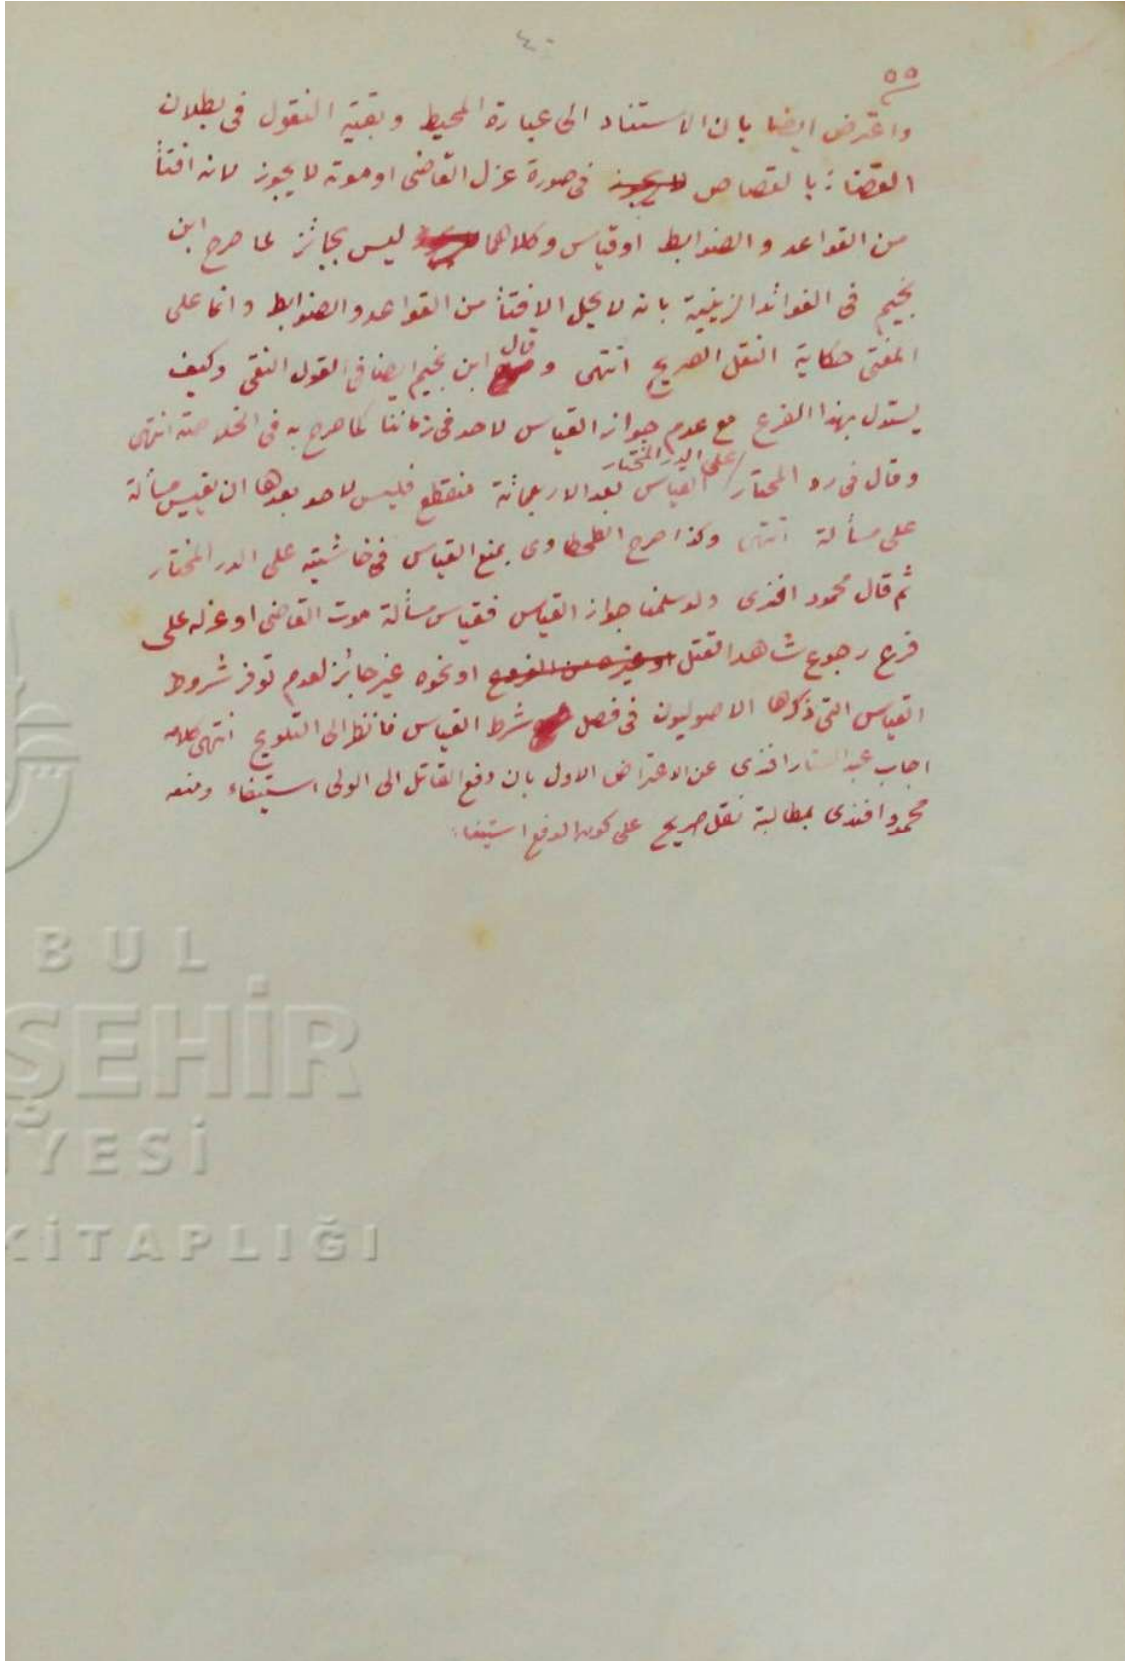 ٤٠
٥٥
واعترض ايضا بان الاستناد الى عبارة المحيط وبقية النقول فى بطلان
القضاء بالقصاص لا يجوز فى صورة عزل القاضى او موته لا يجوز لانه افتاء
من القواعد والضوابط او قياس وكلاهما ليس بجائز لما صرح ابن
نجيم فى الفوائد الزينية بانه لا يحل الافتاء من القواعد والضوابط وانما على
المفتى حكاية النقل الصريح انتهى وقال ابن نجيم ايضا فى القول النقى وكيف
يستدل بهذا الفرع مع عدم جواز القياس لاحد فى زماننا كما صرح به فى الخلاصة انتهى
وقال فى رد المحتار على الدر المختار القياس بعد الاربعمائة منقطع فليس لاحد بعدها ان يقيس مسألة
على مسألة انتهى وكذا صرح الطحطاوى بمنع القياس فى حاشيته على الدر المختار
ثم قال محمود افندى ولو سلمنا جواز القياس فقياس مسألة موت القاضى او عزله على
فرع رجوع شاهد القتل او غيره من الفروع او نحوه غير جائز لعدم توفر شروط
القياس التى ذكرها الاصوليون فى فصل شرط القياس فانظر الى التلويح انتهى كلامه
اجاب عبد الستار افندى عن الاعتراض الاول بان دفع القاتل الى الولى استيفاء ومنعه
محمود افندى بمطالبة نقل صريح على كون الدفع استيفاء
BUL
ŞEHİR
İYESİ
KİTAPLIĞI